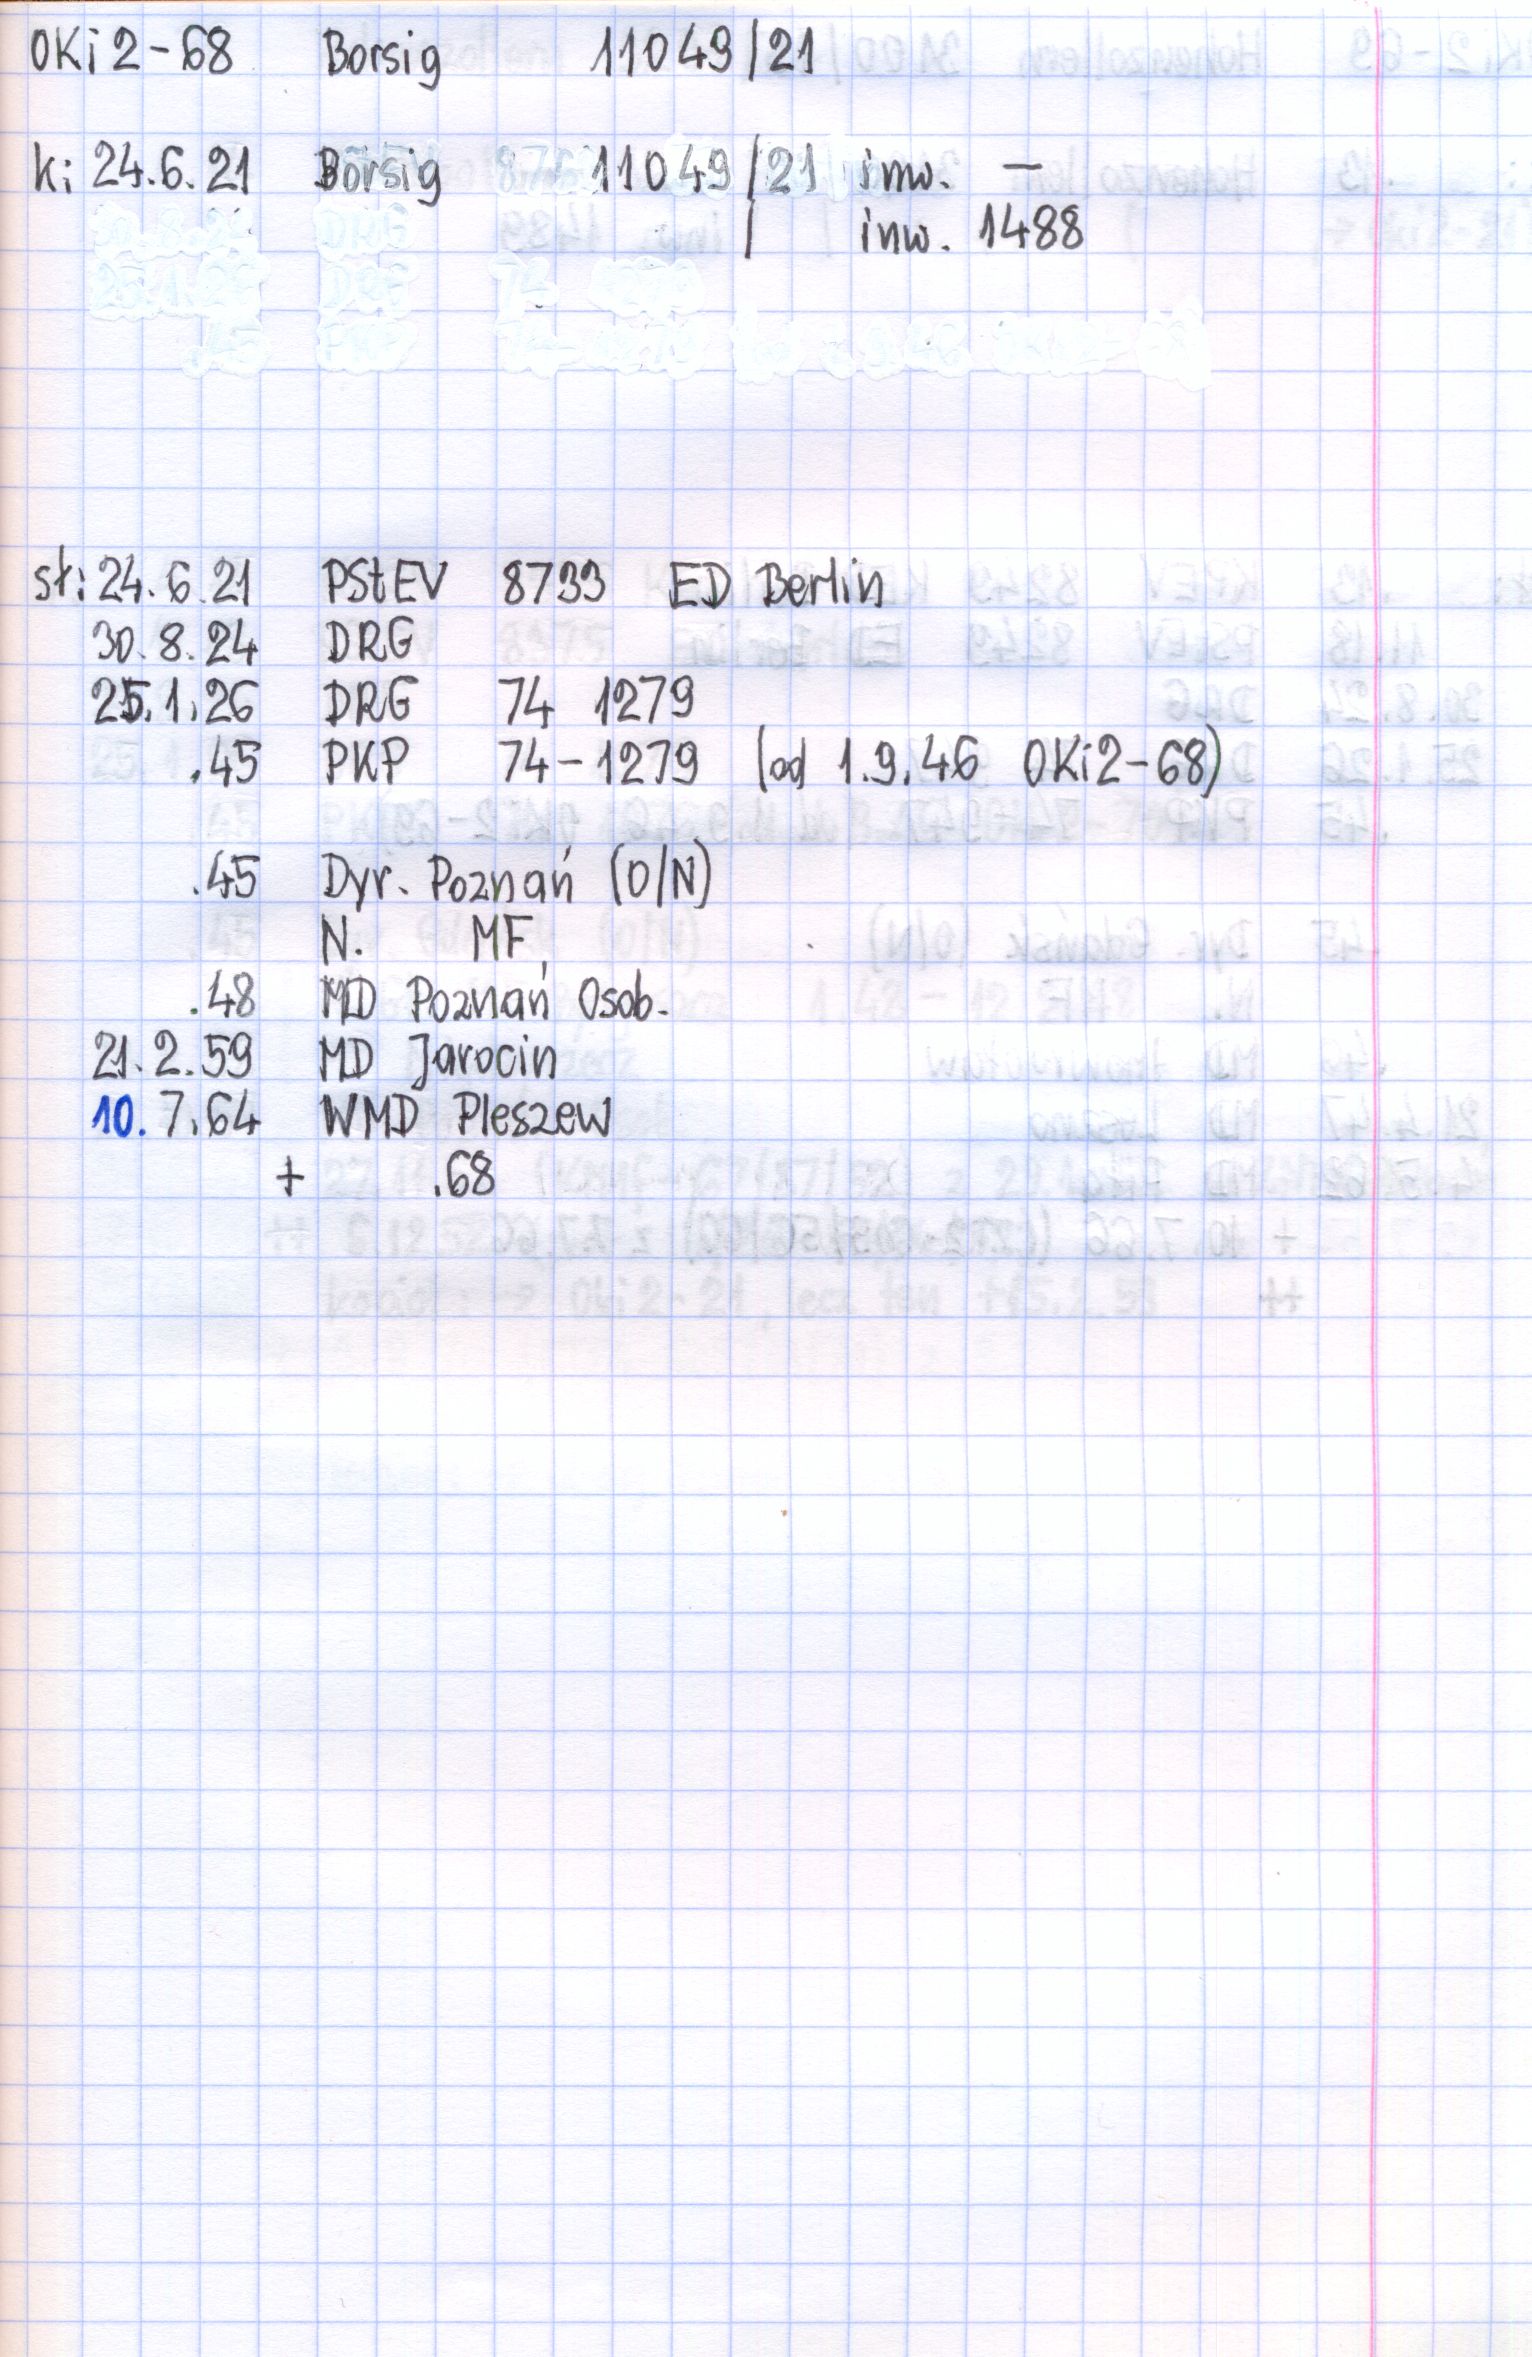 OKi2-68 Borsig 11049/21
k: 24.6.21 Borsig 11049/21 inw. —
/ inw. 1488
st: 24.6.21 PStEV 8733 ED Berlin
30.8.24 DRG
25.1.26 DRG 74 1279
.45 PKP 74-1279 (od 1.9.46 OKi2-68)
.45 Dyr. Poznań (O/N)
N. MF,
.48 MD Poznań Osob.
21.2.59 MD Jarocin
10.7.64 WMD Pleszew
+ .68